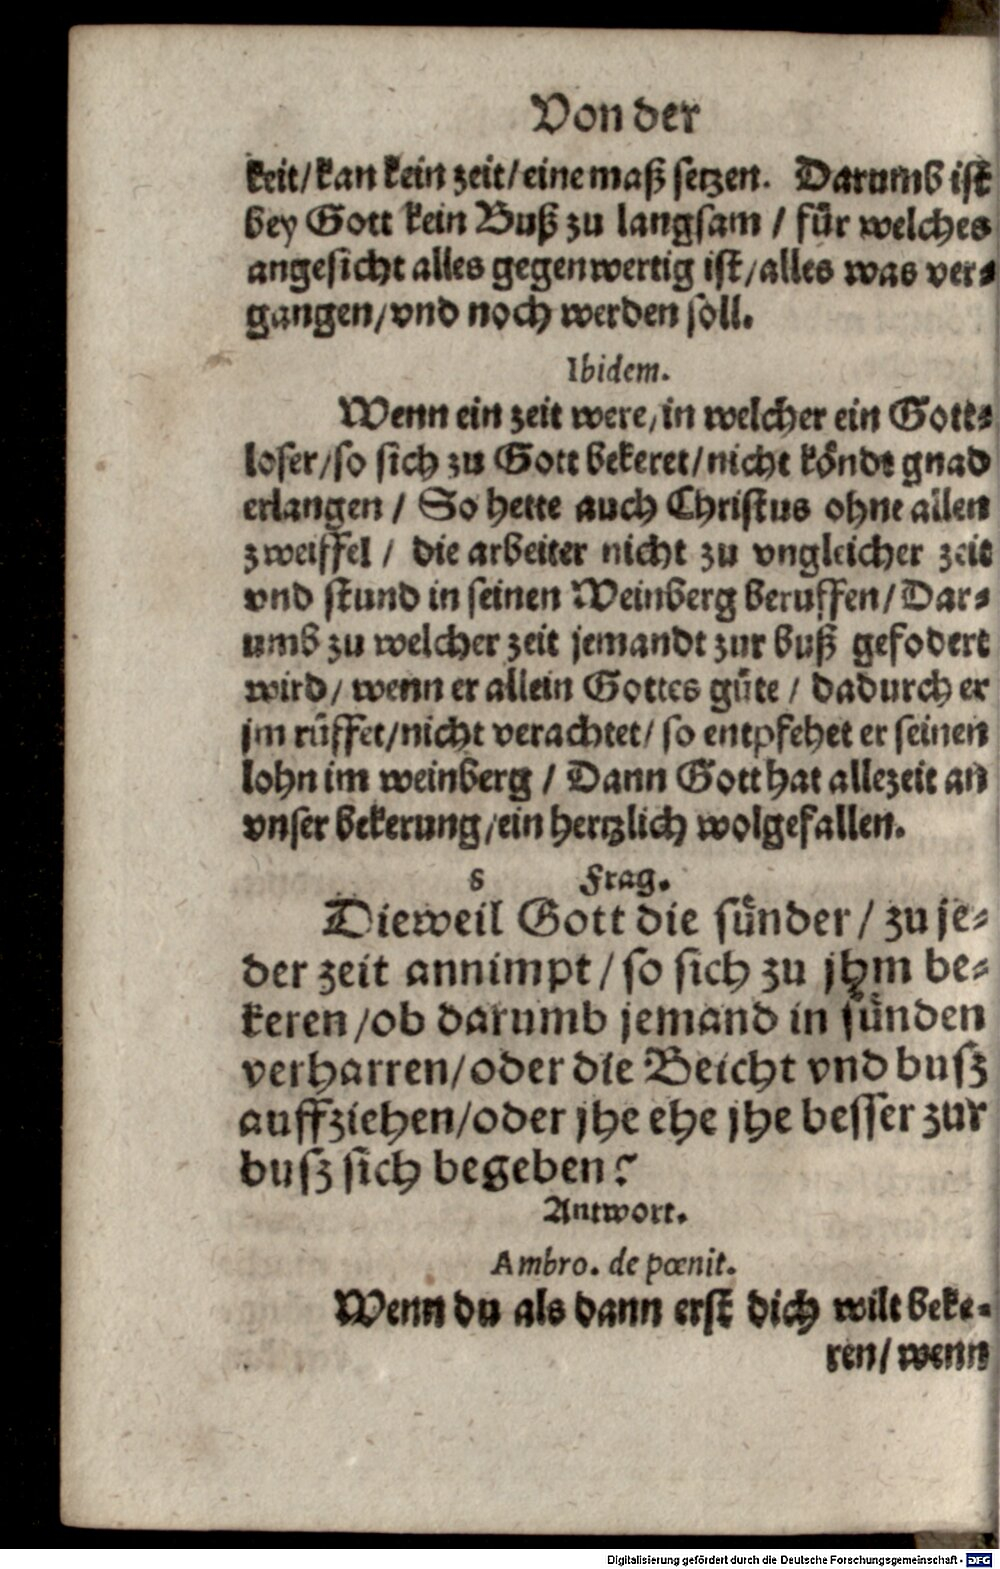 Von der
keit/ kan kein zeit/ eine maß setzen. Darumb ist
bey Gott kein Buß zu langsam / fůr welches
angesicht alles gegenwertig ist/ alles was ver⸗
gangen/ vnd noch werden soll.
Ibidem.
Wenn ein zeit were/ in welcher ein Gott⸗
loser/ so sich zu Gott bekeret/ nicht kőndt gnad
erlangen / So hette auch Christus ohne allen
zweiffel / die arbeiter nicht zu vngleicher zeit
vnd stund in seinen Weinberg beruffen/ Dar⸗
umb zu welcher zeit jemandt zur buß gefodert
wird/ wenn er allein Gottes gůte / dadurch er
jm růffet/ nicht verachtet/ so entpfehet er seinen
lohn im weinberg / Dann Gott hat allezeit an
vnser bekerung/ ein hertzlich wolgefallen.
8 Frag.
Dieweil Gott die sůnder / zu je⸗
der zeit annimpt / so sich zu jhm be⸗
keren / ob darumb jemand in sůnden
verharren/ oder die Beicht vnd busz
auffziehen/ oder jhe ehe jhe besser zur
busz sich begeben?
Antwort.
Ambro. de pœnit.
Wenn du als dann erst dich wilt beke⸗
ren/ wenn
Digitalisierung gefördert durch die Deutsche Forschungsgemeinschaft - DFG